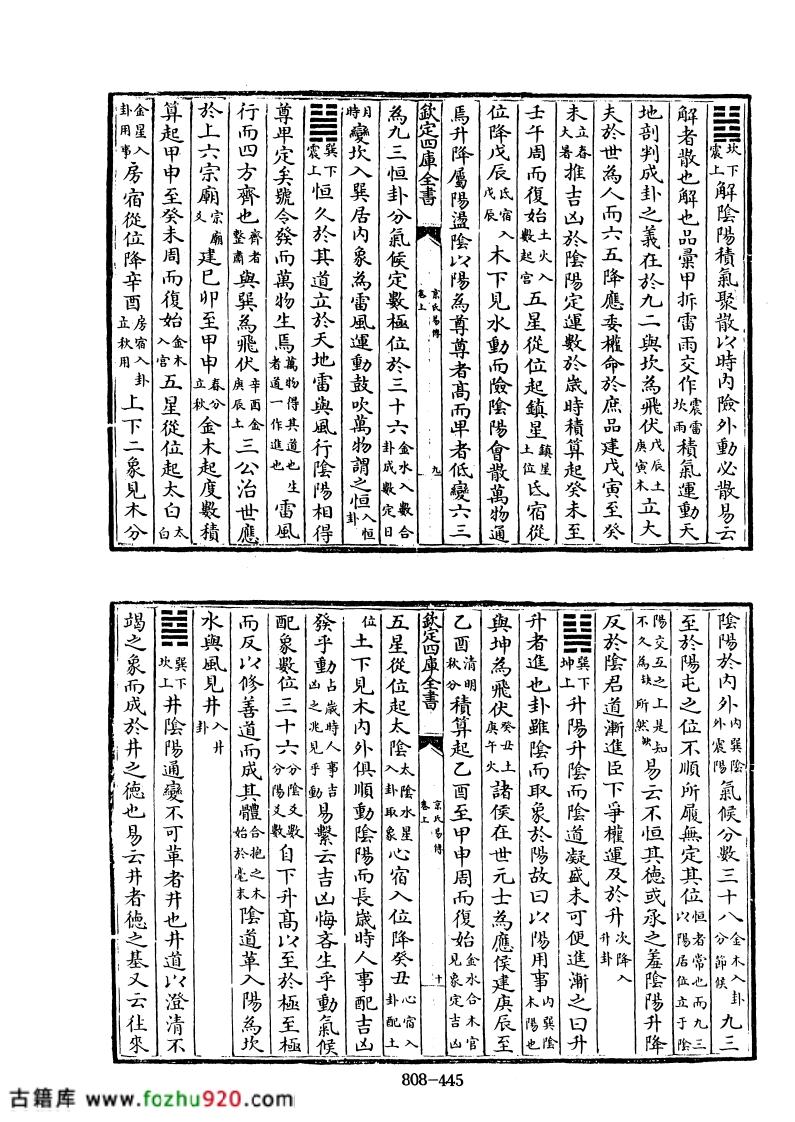 ䷧坎下震上解陰陽積氣聚散以時内險外動必散易云
解者散也解也品彙甲拆雷雨交作震雷坎雨積氣運動天
地剖判成卦之義在於九二與坎為飛伏戊辰土庚寅木立大
夫於世為人而六五降應委權命於庶品建戊寅至癸
未立春大暑推吉凶於陰陽定運數於歲時積算起癸未至
壬午周而復始土火入數起宫五星從位起鎮星鎮星土位氐宿從
位降戊辰氐宿入戊辰木下見水動而險陰陽會散萬物通
焉升降屬陽盪陰以陽為尊尊者髙而卑者低變六三
欽定四庫全書
京氏易傳
卷上
九
為九三恒卦分氣候定數極位於三十六金水入數合卦成數定日
月時變坎入巽居内象為雷風運動鼓吹萬物謂之恒入恒卦
䷟巽下震上恒久於其道立於天地雷與風行陰陽相得
尊卑定矣號令發而萬物生焉萬物得其道也生者道一作進也雷風
行而四方齊也齊者整肅與巽為飛伏辛酉金庚辰土三公治世應
於上六宗廟宗廟爻建己卯至甲申春分立秋金木起度數積
算起甲申至癸未周而復始金木入宫五星從位起太白太白
金星入卦用事房宿從位降辛酉房宿入卦立秋用上下二象見木分
陰陽於内外内巽陰外震陽氣候分數三十八金木入卦分節候九三
至於陽屯之位不順所履無定其位恒者常也而九三以陽居位立于陰
陽交互之工是知不久為缺所然歟易云不恒其德或承之羞陰陽升降
反於陰君道漸進臣下爭權運及於升次降入升卦
䷭巽下坤上升陽升陰而陰道凝盛未可便進漸之曰升
升者進也卦雖陰而取象於陽故曰以陽用事内巽陰木陽也
與坤為飛伏癸丑土庚午火諸侯在世元士為應侯建庚辰至
乙酉清明秋分積算起乙酉至甲申周而復始金水合木官見象定吉凶
欽定四庫全書
京氏易傳
卷上
十
五星從位起太陰太陰水星入卦取象心宿入位降癸丑心宿入卦配土
位土下見木内外俱順動陰陽而長歲時人事配吉凶
發乎動占歲時人事吉凶之兆見乎動易繫云吉凶悔吝生乎動氣候
配象數位三十六分陰爻數分陽爻數自下升髙以至於極至極
而反以修善道而成其體合抱之木始於毫末陰道革入陽為坎
水與風見井入井卦
䷯巽下坎上井陰陽通變不可革者井也井道以澄清不
竭之象而成於井之德也易云井者德之基又云往來
808-445
古籍库 www.fozhu920.com